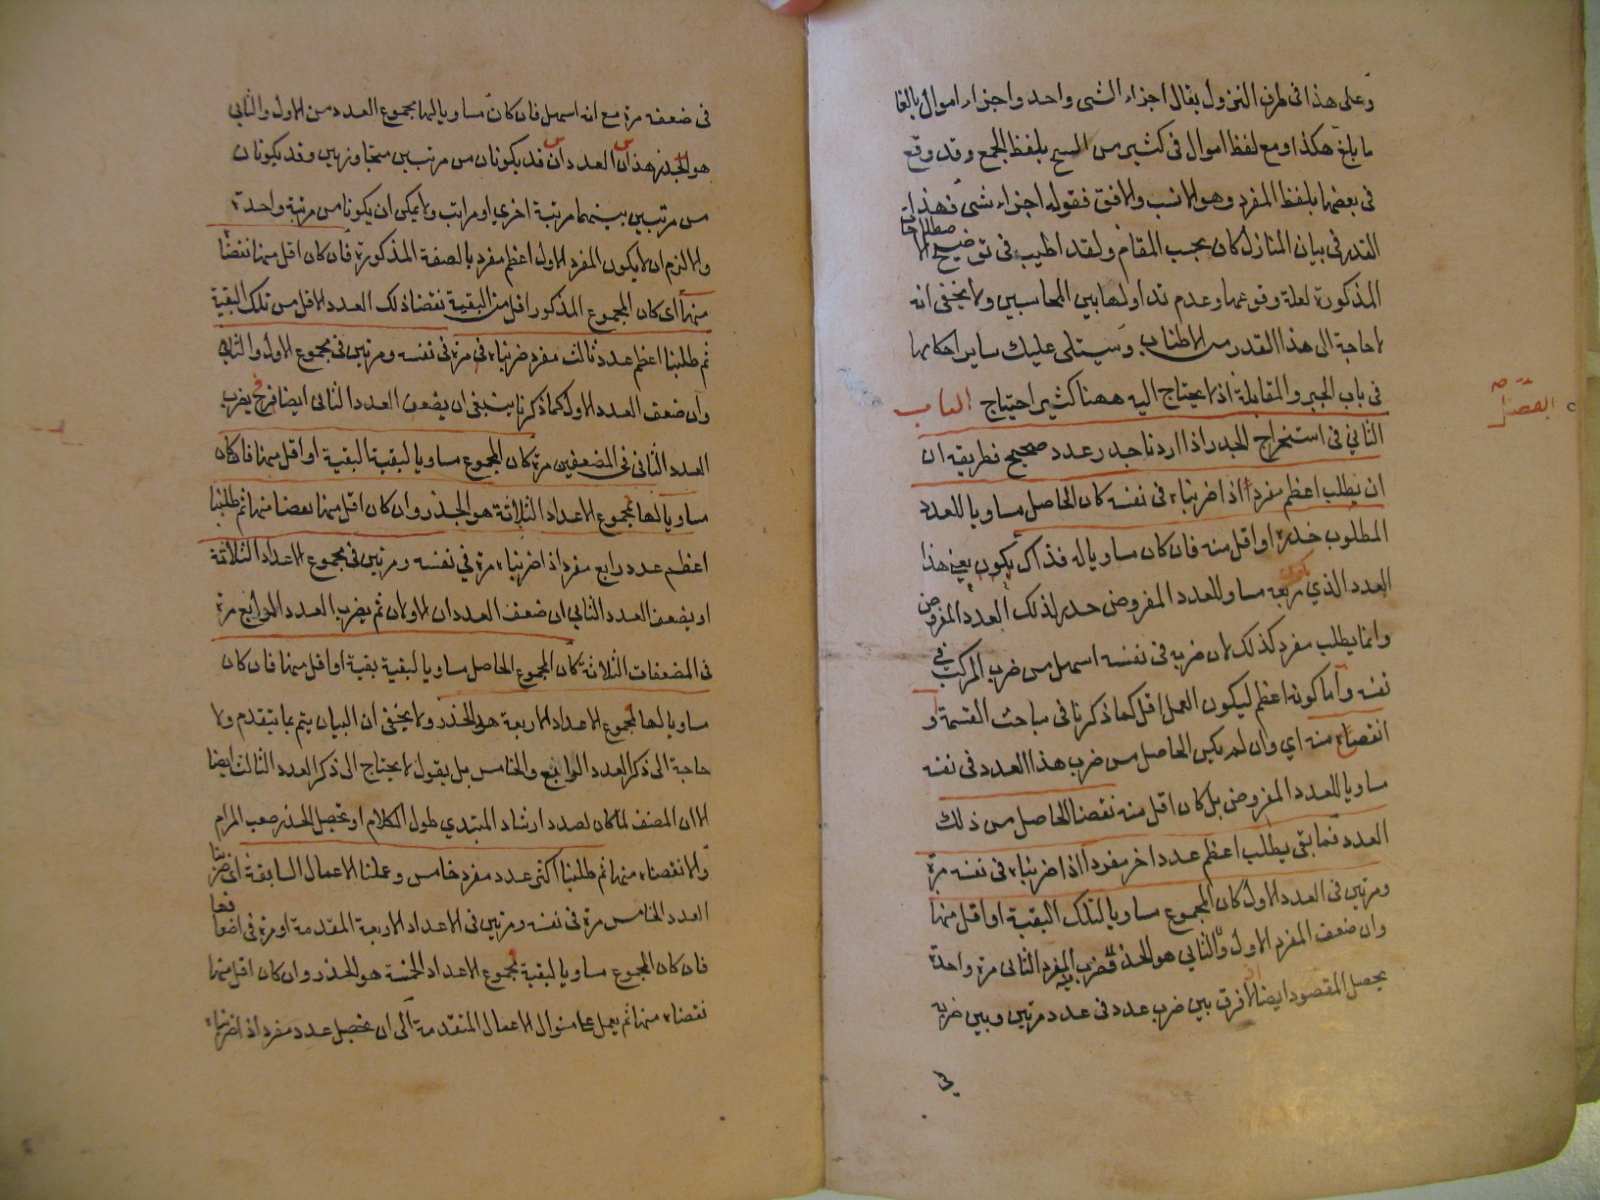 وعلى هذا فى طرف النزول يقال اجزاء الشى واحد واجزاء اموال بالغا
ما بلغ هكذا ومع لفظ اموال فى كثير من النسخ بلفظ الجمع وقد وقع
فى بعضها بلفظ المفرد وهو الانسب والافق فقوله اجزاء شى فهذا
القدر فى بيان المنازل كان بحسب المقام ولقد اطيب فى توضيح الاصطلاحات
المذكورة لعلة وقوعها وعدم تداولها بين المحاسبين ولا يخفى انه
لا حاجة الى هذا القدر من الاطناب وسيتلى عليك ساير احكامها
فى باب الجبر والمقابلة اذ لا يحتاج اليه ههنا كثير احتياج الباب
الثاني فى استخراج الجذر اذا اردنا جذر عدد صحيح فطريقه ان
ان يطلب اعظم مفرد اذا ضربناه فى نفسه كان الحاصل مساويا للعدد
المطلوب جذره او اقل منه فان كان مساويا له فذاك يكون يعني هذا
العدد الذي يكون مربعه مساو للعدد المفروض جذر لذلك العدد المفروض
وانما يطلب مفرد كذلك لان ضربه فى نفسه اسهل من ضرب المركب في
نفسه واما كونه اعظم ليكون العمل اقل كما ذكرنا فى مباحث القسمة و
انقصناه منه اي وان لم يكن الحاصل من ضرب هذا العدد فى نفسه
مساويا للعدد المفروض بل كان اقل منه نقصنا الحاصل من ذلك
العدد فما بقى يطلب اعظم عدد اخر مفرد اذا ضربناه فى نفسه مرة
ومرتين فى العدد الاول كان المجموع مساويا لتلك البقية او اقل منها
وان ضعف المفرد الاول والثاني هو الجذر فضرب المفرد الثانى مرة واحدة
يحصل المقصود ايضا اذ لا فرق بين ضرب عدد فى عدد مرتين وبين ضربه
فى
فى ضعفه مرة مع انه اسهل فان كان مساويا لها مجموع العدد من الاول والثاني
هو الجذر هذان العددان قد يكونان من مرتبين متجاوزتين وقد يكونان
من مرتبين بينهما مرتبة اخري او مراتب ولا يمكن ان يكونا من مرتبة واحدة
والا لزم ان لا يكون المفرد الاول اعظم مفرد بالصفة المذكورة فان كان اقل منها نقصنا
منها اى كان المجموع المذكور اقل من البقية نقصنا ذلك العدد الاقل من تلك البقية
ثم طلبنا اعظم عدد ثالث مفرد ضربناه فى مرة فى نفسه ومرتين فى مجموع الاول والثاني
وان ضعف العدد الاول كما ذكرنا ينبغى ان يضعف العدد الثانى ايضا فح يضرب
العدد الثانى فى المضعفين مرة كان المجموع مساويا لبقية البقية او اقل منها فان كان
مساويا لها فمجموع الاعداد الثلاثة هو الجذر وان كان اقل منها نقصنا منها ثم طلبنا
اعظم عدد رابع مفرد اذا ضربناه مرة في نفسه ومرتين فى مجموع الاعداد الثلاثة
او يضعف العدد الثاني ان ضعف العددان الاولان ثم يضرب العدد الرابع مرة
فى المضعفات الثلاثة كان المجموع الحاصل مساويا لبقية بقية او اقل منها فان كان
مساويا لها فمجموع الاعداد الاربعة هو الجذر ولا يخفى ان البيان يتم بما يتقدم ولا
حاجة الى ذكر العدد الرابع والخامس بل يقول لا يحتاج الى ذكر العدد الثالث ايضا
الا ان المصنف لما كان لصدد ارشاد المبتدي طول الكلام او تحصيل الجذر صعب المرام
والا نقصناه منها ثم طلبنا اكثر عدد مفرد خامس وعملنا الاعمال السابقة اى ضربنا
العدد الخامس مرة فى نفسه ومرتين فى الاعداد الاربعة المقدمة او مرة فى اضعافها
فان كان المجموع مساويا لبقية فمجموع الاعداد الخمسة هو الجذر وان كان اقل منها
نقصناه منها ثم يعمل على منوال الاعمال المتقدمة الى ان تحصل عدد مفرد اذا ضربناه